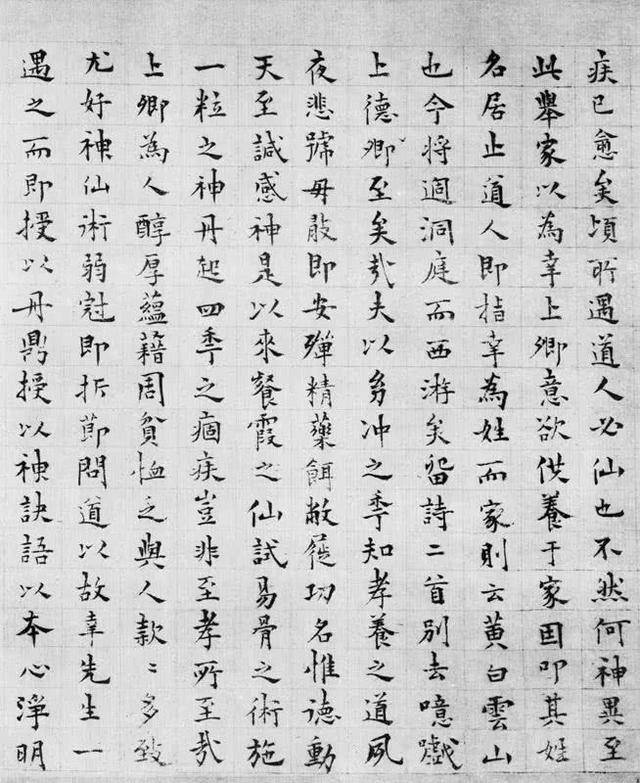 疾已愈矣頃所遇道人必仙也不然何神異至
此舉家以為幸上卿意欲供養于家因叩其姓
名居止道人即指幸為姓而家則云黄白雲山
也今将適洞庭而西游矣留詩二首別去噫戲
上德卿至矣哉夫以幼冲之秊知孝養之道夙
夜悲號毋敢即安殫精藥餌敝蓰功名惟德動
天至諴感神是以來餐霞之仙試易骨之術施
一粒之神丹起四秊之痼疾豈非至孝所至哉
上卿為人醇厚蘊藉周貧恤乏與人款〻多致
尤好神仙術弱冠即折節問道以故幸先生一
遇之而即授以丹鼎授以神訣語以本心淨明